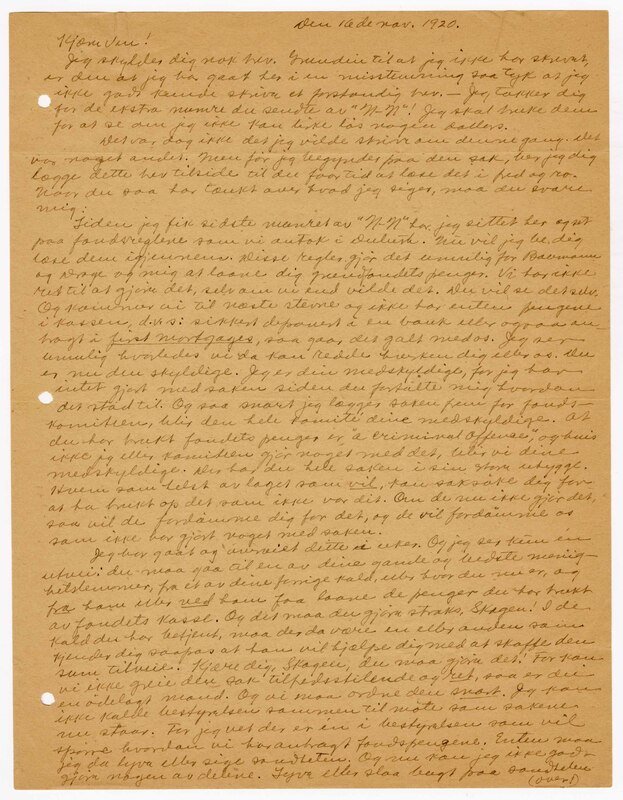 Den 16de nov. 1920.
Kjære Ven!
Jeg skylder dig nok brev. Grunden til at jeg ikke har skrevet,
er den at jeg har gaat her i en misstemning saa tyk at jeg
ikke godt kunde skrive et forstandig brev. — Jeg takker dig
for de ekstra numre du sendte av "N-N"! Jeg skal bruke dem
for at se om jeg ikke kan lirke lös nogen dollers.
Det var dog ikke det jeg vilde skrive om denne gang. Det
var noget andet. Men för jeg begynder paa den sak, ber jeg dig
lægge dette brev tilside til du faar tid at læse det i fred og ro.
Naar du saa har tænkt over hvad jeg siger, maa du svare
mig.
Siden jeg fik sidste numret av "N-N" har jeg sittet her og set
paa fondsreglene som vi antok i Duluth. Nu vil jeg be dig
læse dem igjennem. Disse regler gjör det umulig for Baumann
og og mig at laane dig grundfondets penger. Vi har ikke
ret til at gjöre det, selv om vi end vilde det. Du vil se det selv.
Og kommer vi til næste stevne og ikke har enten pengene
i kassen, d.v.s: sikkert deponert i en bank eller ogsaa an-
bragt i first mortgages, saa gaar det galt med os. Jeg ser
umulig hvorledes vi da kan redde hverken dig eller os. Du
er nu den skyldige. Jeg er din medskyldige, for jeg har
intet gjort med saken siden du fortalte mig hvordan
det stod til. Og saa snart jeg lægger saken frem for fonds-
komiteen, blir den hele komité dine medskyldige. At
du har brukt fondets penger er "a criminal offense", og hvis
ikke jeg eller komiteen gjör noget med det, blir vi dine
medskyldige. Der har du hele saken i sin store uhygge.
Hvem som helst av laget som vil, kan saksöke dig for
at ha brukt op det som ikke var dit. Om de nu ikke gjör det,
saa vil de fordömme dig for det, og de vil fordömme os
som ikke har gjort noget med saken.
Jeg har gaat og overveiet dette i uker. Og jeg ser kun én
utvei: du maa gaa til en av dine gamle og bedste menig-
hetslemmer, fra et av dine forrige kald, eller hvor du nu er, og
fra ham eller ved ham faa laane de penger du har brukt
av fondets kasse. Og det maa du gjöre straks, Skagen! I de
kald du har betjent, maa der da være en eller anden som
kjender dig saapas at han vil hjælpe dig med at skaffe den
sum tilveie. Kjære dig, Skagen, du maa gjöre det! For kan
vi ikke greie den sak tilfredsstillende og ret, saa er du
en ödelagt mand. Og vi maa ordne den snart. Jeg kan
ikke kalde bestyrelsen sammen til möte som sakene
nu staar. For jeg vet der er én i bestyrelsen som vil
spörre hvordan vi har anbragt fondspengene. Enten maa
jeg da lyve eller sige sandheten. Og nu kan jeg ikke godt
gjöre nogen av delene. Lyve eller slaa bugt paa sandheten
(over!)